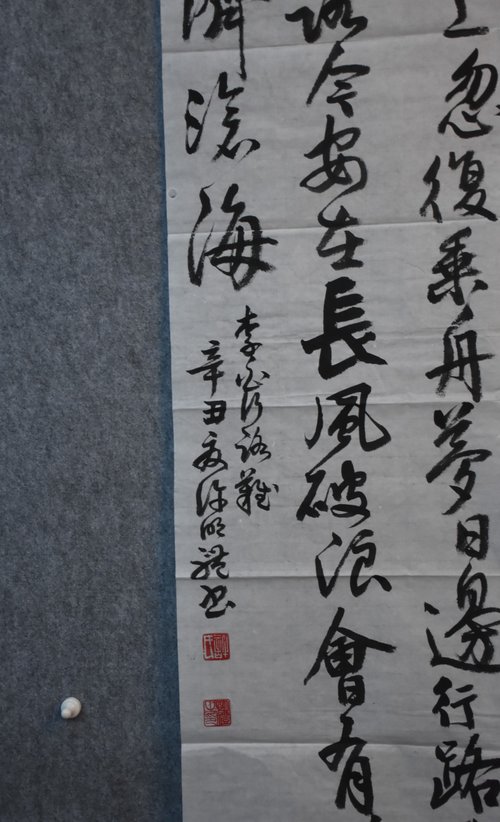 上忽復乘舟夢日邊行路
路今安在長風破浪會有
濟滄海
李白行路難
辛丑夏许明书